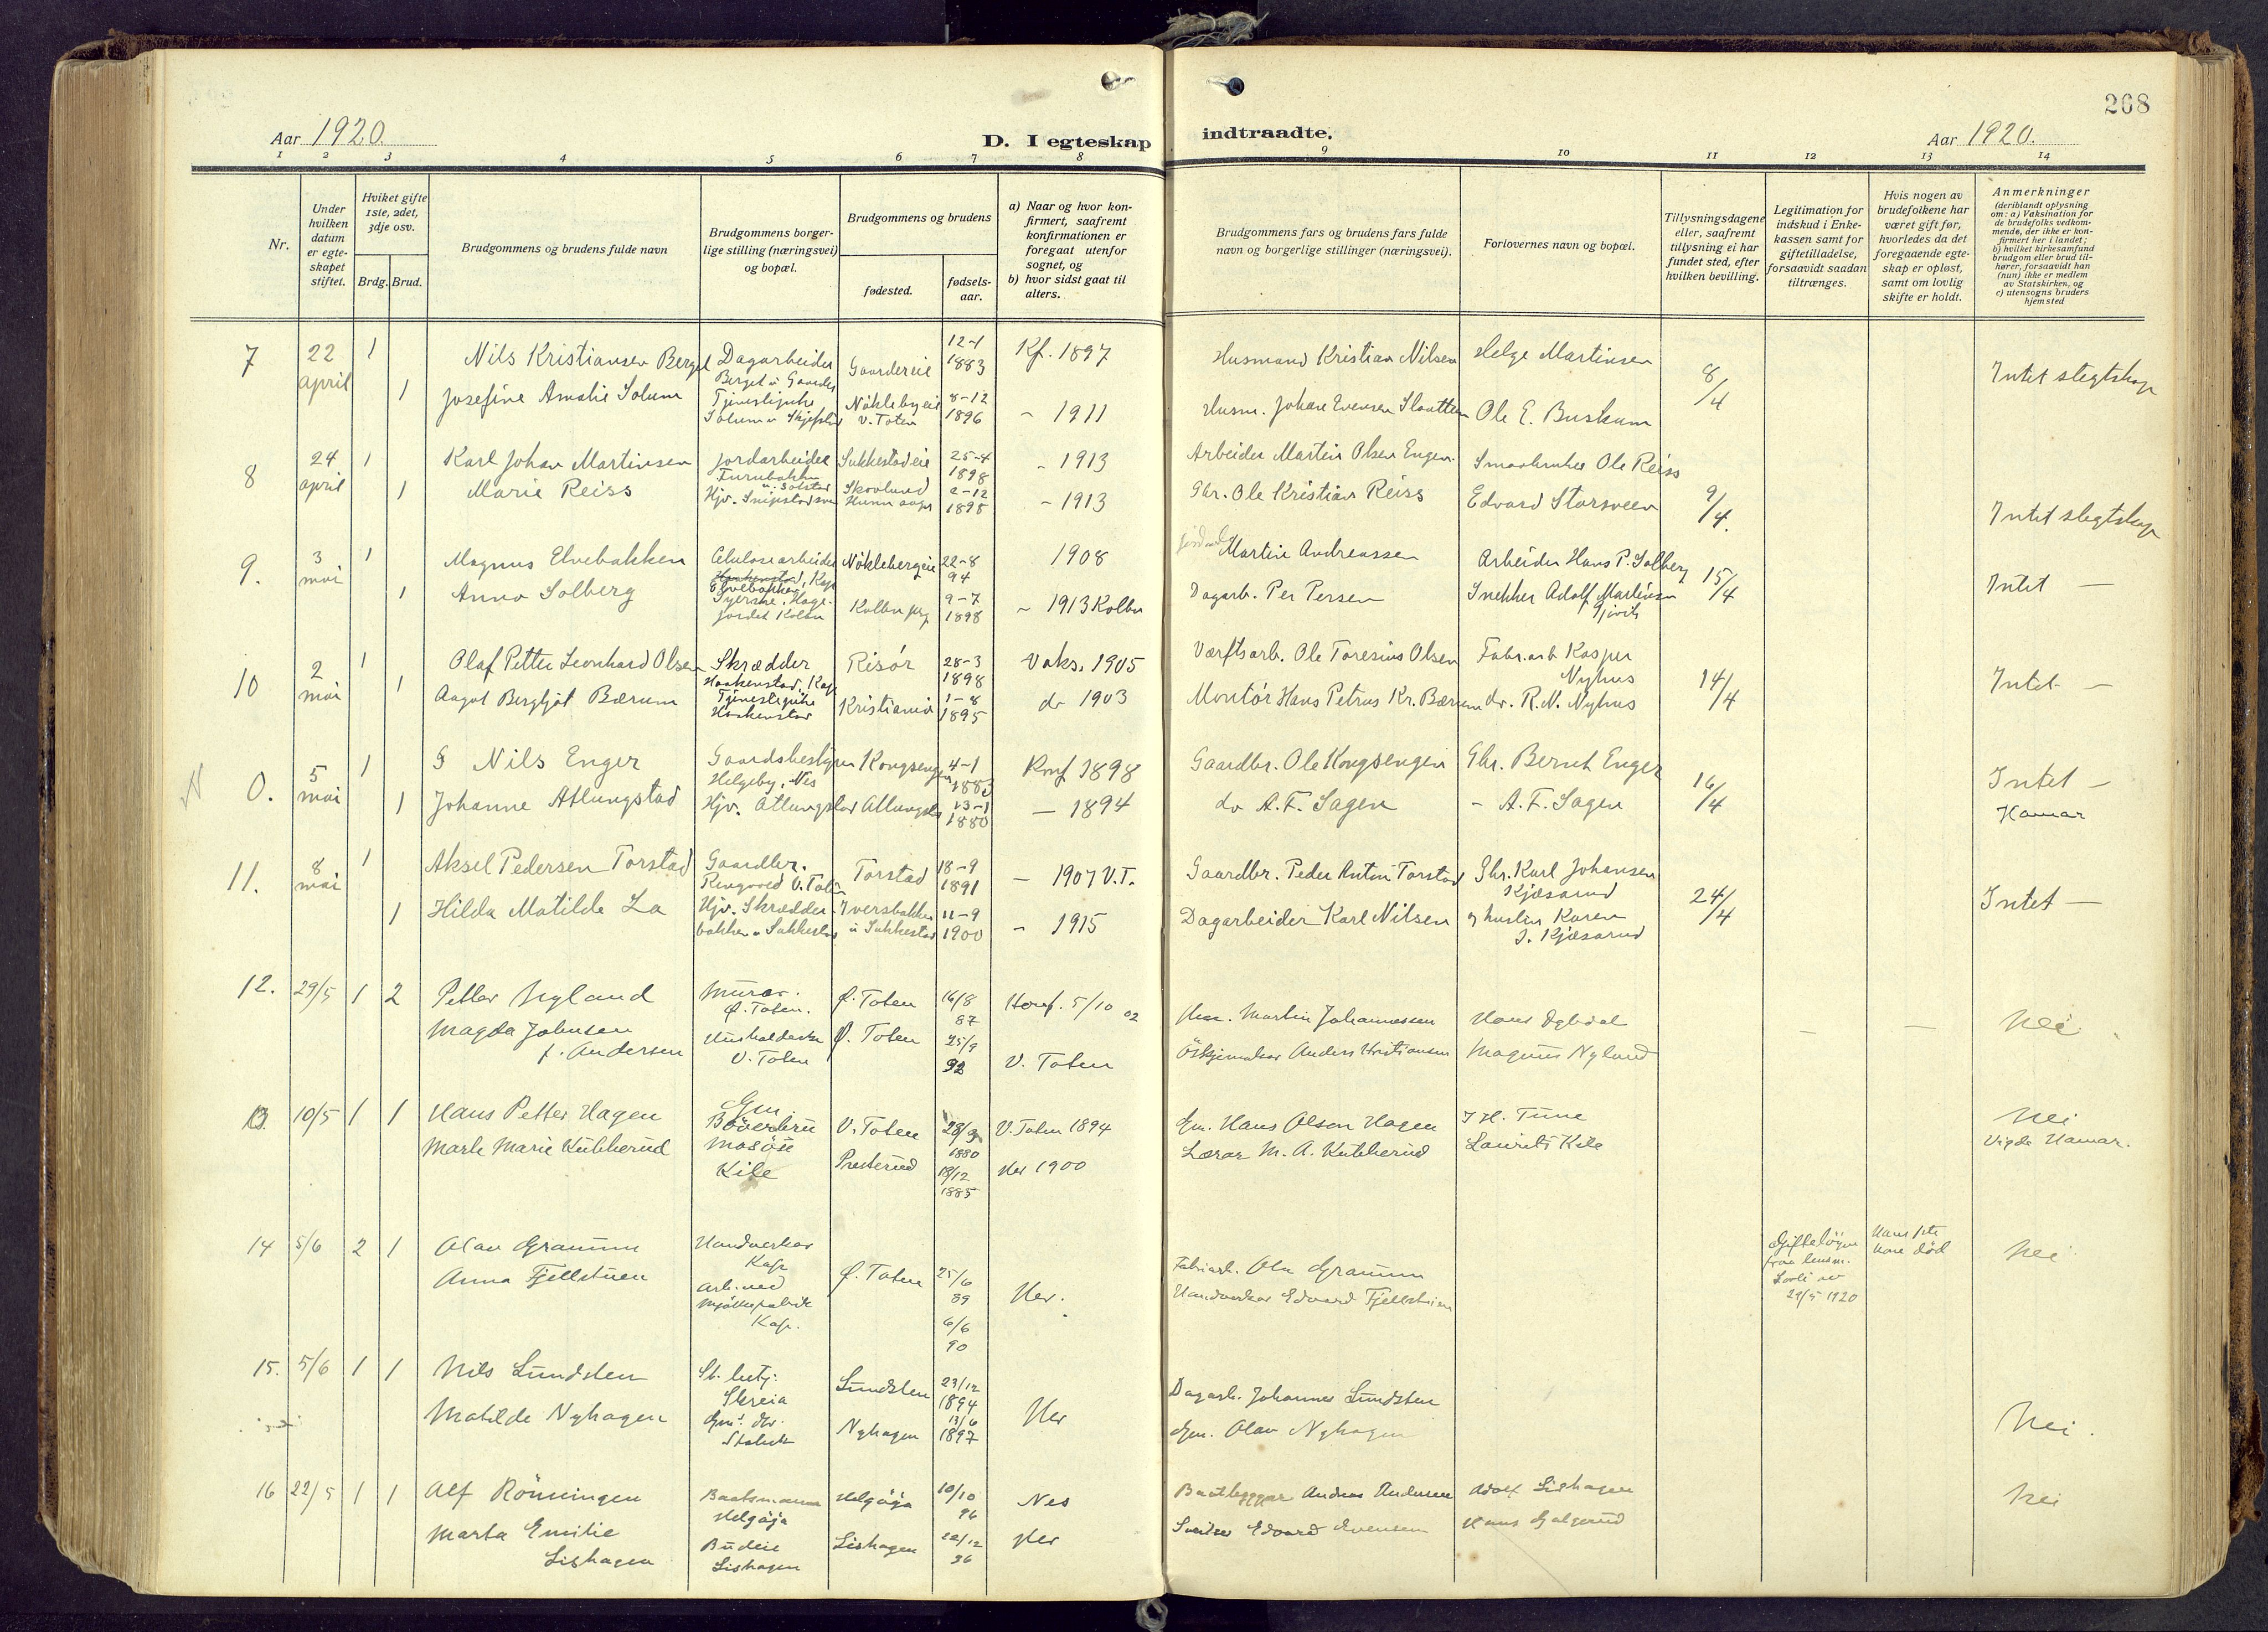 268
Aar 1920.
D. I egteskap indtraadte.
Aar 1920.
1 2 3 4 5 6 7 8 9 10 11 12 13 14
Nr.
Under hvilken datum er egte- skapet stiftet.
Hviket gifte 1ste, 2det, 3dje osv.
Brdg. Brud.
Brudgommens og brudens fulde navn
Brudgommens borger- lige stilling (næringsvei) og bopæl.
Brudgommens og brudens
fødested.
fødsels- aar.
a) Naar og hvor kon- firmert, saafremt konfirmationen er foregaat utenfor sognet, og
b) hvor sidst gaat til alters.
Brudgommens fars og brudens fars fulde navn og borgerlige stillinger (næringsvei).
Forlovernes navn og bopæl.
Tillysningsdagene eller, saafremt tillysning ei har fundet sted, efter hvilken bevilling.
Legitimation for indskud i Enke- kassen samt for giftetilladelse, forsaavidt saadan tiltrænges.
Hvis nogen av brudefolkene har været gift før, hvorledes da det foregaaende egte- skap er opløst, samt om lovlig skifte er holdt.
Anmerkninger
(deriblandt oplysning om: a) Vaksination for de brudefolks vedkom- mende, der ikke er kon- firmert her i landet; b) hvilket kirkesamfund brudgom eller brud til- hører, forsaavidt han (nun) ikke er medlem av Statskirken, og c) utensogns bruders hjemsted
7 22 april 1 Nils Kristiansen Berget Dagarbeider Berget u Gaarder Gaardereie 12-1 1883 Kf. 1897 Husmand Kristian Nilsen Helge Martinsen 8/4 Intet slegtskap
1 Josefine Amalie Solum Tjenestepike Solum u Skjefstad Nøklebyeie V. Toten 8-12 1896 - 1911 Husm. Johan Evensen Slaatten Ole E. Buskum
8 24 april 1 Karl Johan Martinsen Jordarbeider Furubakken Sukkestadeie 25-4 1898 - 1913 Arbeider Martin Olsen Engen Smaabruker Ole Reiss 9/4. Intet slegtskap
1 Marie Reiss Hjv. Skovlund 2-12 1898 - 1913 Gbr. Ole Kristian Reiss Edvard Storsveen
9. 3 mai 1 Magnus Elvebakken Celulosearbeider Elvebakken Kap Nøklebergeie 22-8 94 1908 Martin Andreassen Arbeider Hans P. Solberg 15/4 Intet —
1 Anna Solberg Hage- jordet Kolbu Kolbu 9-7 1898 - 1913 Kolbu Dagarb. Per Persen Snekker Adolf Martinsen Gjøvik
10 2 mai 1 Olaf Petter Leonhard Olsen Skrædder Haakenstad, Kap Risør 28-3 1898 Vaks. 1905 Værftsarb. Ole Toresius Olsen Fabr.arb Kasper Nyhus 14/4 Intet —
1 Aagot Bergljot Bærum Tjenestepike Haakenstad Kristiania 1-8 1895 do 1903 Montør Hans Petrus Kr. Bærum do. R. N. Nyhus
0. 5 mai 1 Nils Enger Gaardsbestyrer Helgeby, Nes Kongsengen 4-1 1883 Konf 1898 Gaardbr. Ole Kongsengen Gbr. Bernt Enger 16/4 Intet —
1 Johanne Atlungstad Hjv. Atlungstad Atlungstad 13-1 1880 — 1894 do A. F. Sagen - A. F. Sagen Hamar
11. 8 mai 1 Aksel Pedersen Torstad Gaardbr. Ringvold V. Toten Torstad 18-9 1891 — 1907 V.T. Gaardbr. Peder Anton Torstad Gbr. Karl Johansen Kjøsarud 24/4 Intet —
1 Hilda Matilde La Hjv. Skrædder- bakken u Sukkestad Iversbakken u Sukkestad 11-9 1900 - 1915 Dagarbeider Karl Nilsen og hustru Karen J. Kjøsarud
12. 29/5 1 2 Petter Nyland Murar. Ø. Toten. Ø. Toten 16/8 87 Konf. 5/10 02 Martin Johannessen Hans — — Nei
Magda Johnsen f. Andersen Husholderske V. Toten Ø. Toten 25/9 92 V. Toten Anders Kristiansen Magnus Nyland
13. 10/5 1 1 Hans Petter Hagen Gm Bøverbru V. Toten 28/9 1880 V. Toten 1894 Gm. Hans Olsen Hagen J H. Tune Nei
Marte Marie Kukkerud Masøse Kile Presterud 18/12 1885 Her 1900 Lærar M. A. Kukkerud Laurits Kile Vigde Hamar.
14 5/6 2 1 Olav Graunm Handverkar Kap Ø. Toten 25/6 89 Her. Fabrikarb. Ola Graunm Gifteløyve fraa lensm. 29/5 1920 Hans fste kone død Nei
Anna Fjellstuen Arb. ved mjølkefabrik Kap. 6/6 90 Handverkar Edvard Fjellstuen
15. 5/6 1 1 Nils Lundsten St. betj. Skreia Lundsten 23/12 1894 Her Dagarb. Johannes Lundsten Nei.
Matilde Nyhagen Gm. dtr. Nyhagen 13/6 1897 Gm. Olav Nyhagen
16 22/5 1 1 Alf Rönningen Baatsmann Helgøja Helgøja 10/10 96 Nes Baatbyggar Andreas Andersen Adolf Lishagen Nei
Marta Emilie Lishagen Budeie Lishagen Lishagen 20/12 96 Her Edvard Evensen Hans Galgerud